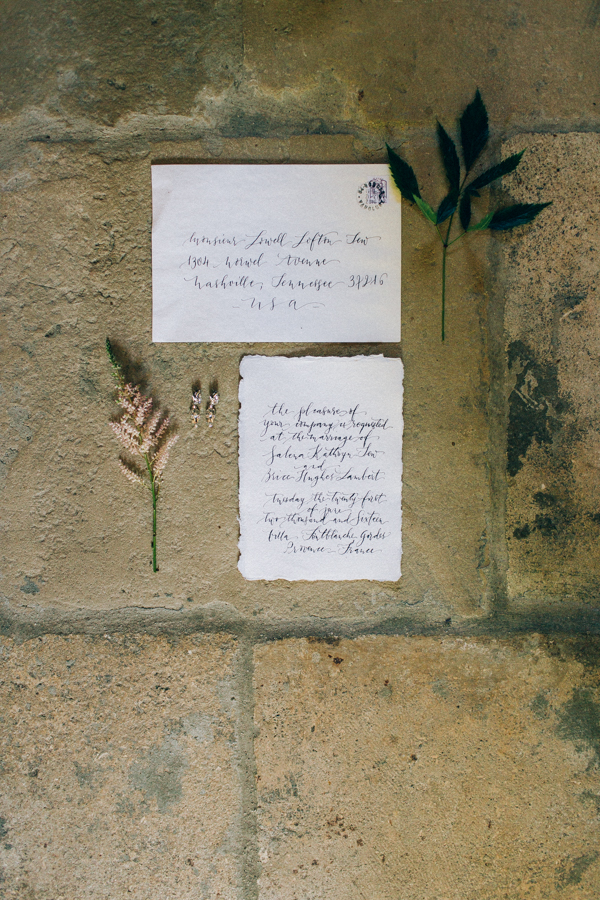 Monsieur Lowell Lofton Sew
1304 Norwel Avenue
Nashville, Tennessee 37216
U S A
the pleasure of
your company is requested
at the marriage of
Salena Kathryn Sew
and
Brice Hughes Lambert
tuesday the twenty first
of june
two thousand and sixteen
Gordes
Provence France